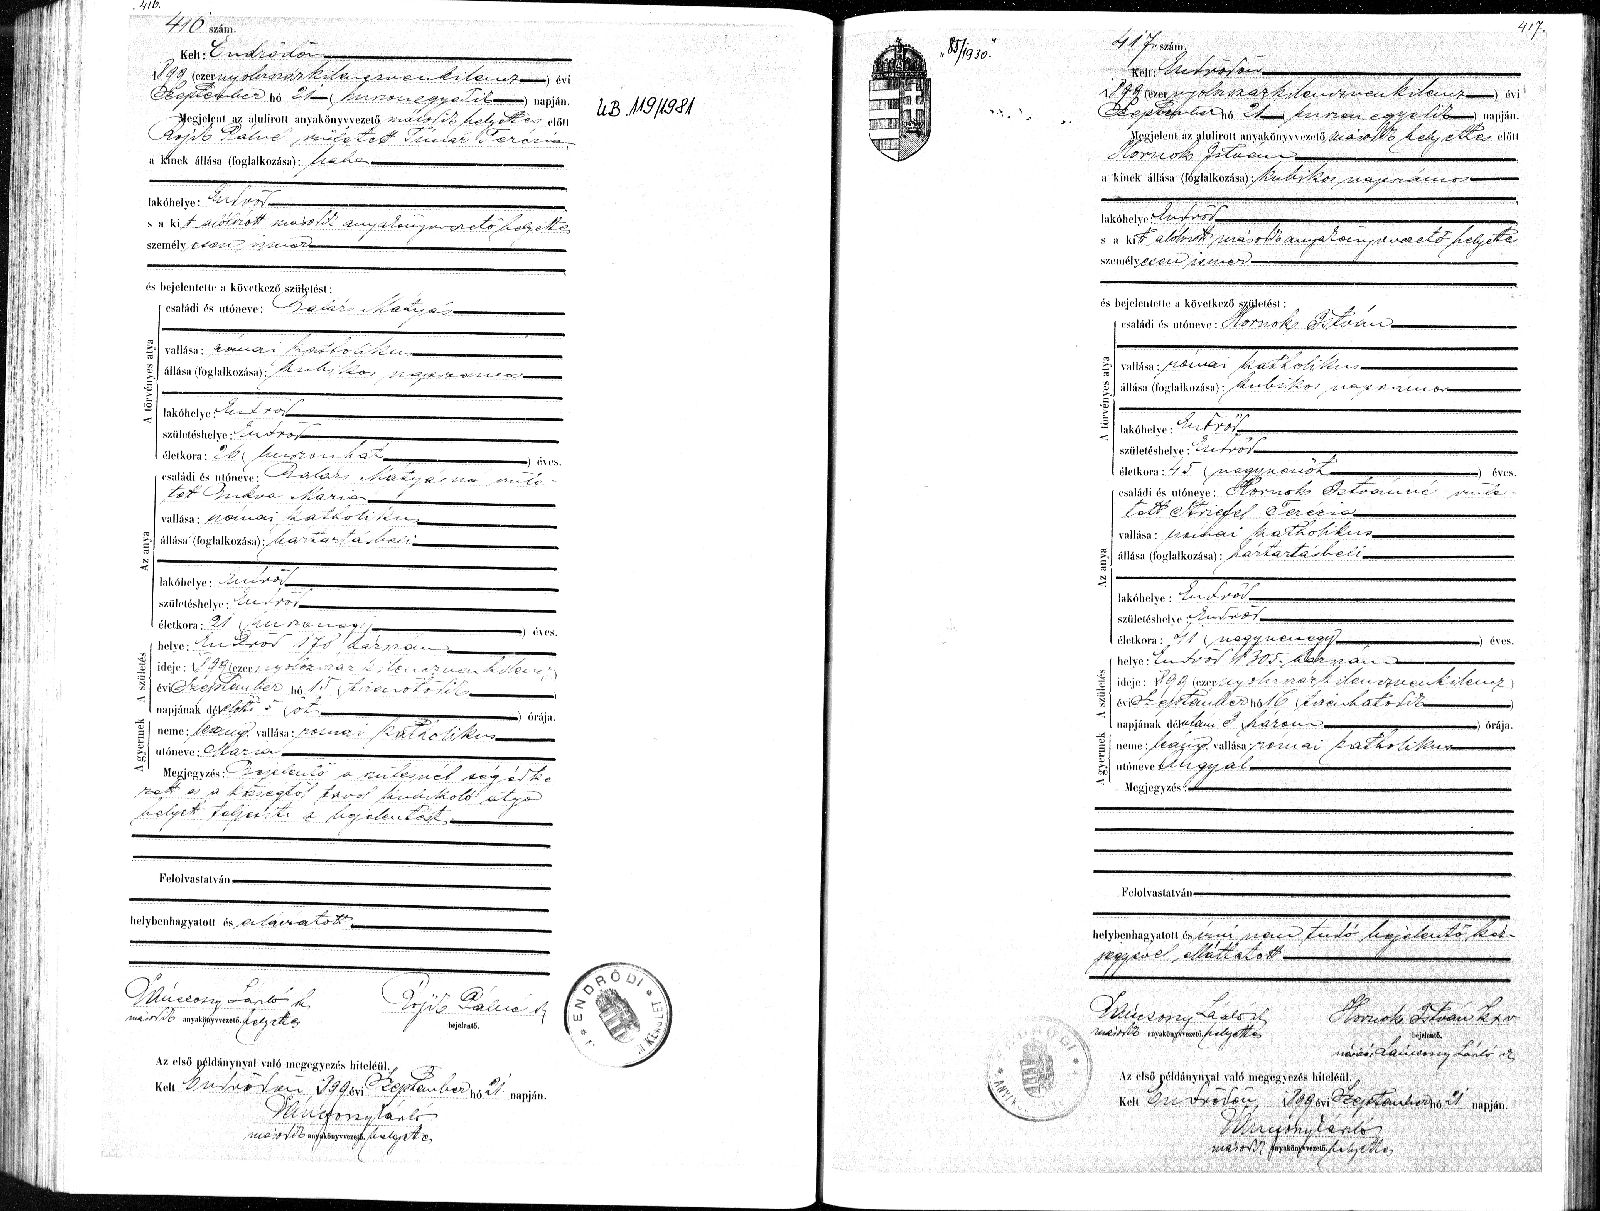 416.
416 szám.
Kelt: Endrődön
1899 (ezernyolcszázkilencvenkilencz) évi
Szeptember hó 21 (huszonegyedik) napján.
Megjelent az alulirott anyakönyvvezető második helyettes előtt
született Tímár Terézia,
a kinek állása (foglalkozása): bába
lakóhelye: Endrőd
s a kit alólirott második anyakönyvvezető helyettes
személyesen ismer
és bejelentette a következő születést:
A törvényes atya
családi és utóneve: Mátyás
vallása: római katholikus
állása (foglalkozása): kubikos napszámos
lakóhelye: Endrőd
születéshelye: Endrőd
életkora: 26 (huszonhat) éves.
Az anya
családi és utóneve: Mátyásné szüle-
tett Mária
vallása: római katholikus
állása (foglalkozása): háztartásbeli
lakóhelye: Endrőd
születéshelye: Endrőd
életkora: 21 (huszonegy) éves.
A születés
helye: Endrőd 178 házszám
ideje: 1899 (ezernyolczszázkilenczvenkilencz)
évi Szeptember hó 15 (tizenötödik)
napjának délelőtti 5 (öt) órája.
A gyermek
neme: leány vallása: római katholikus
utóneve: Mária
Megjegyzés: Bejelentő a szülésnél segédke-
zett és a községtől távol atya
helyett teljesíti a bejelentést.
Felolvastatván
helybenhagyatott és aláiratott
Láncsony László k
második anyakönyvvezető. helyettes
Pálné
bejelentő.
ENDRŐDI
Az első példánynyal való megegyezés hiteléül.
Kelt Endrődön, 1899 évi Szeptember hó 21 napján.
László
második anyakönyvvezető. helyettes
UB 119/1981
"85/1930."
417.
417 szám.
Kelt: Endrődön
1899 (ezernyolczszázkilenczvenkilencz) évi
Szeptember hó 21 (huszonegyedik) napján.
Megjelent az alulirott anyakönyvvezető második helyettes előtt
Hornok István
a kinek állása (foglalkozása): kubikos napszámos
lakóhelye: Endrőd
s a kit alolirott második anyakönyvvezető helyettes
személyesen ismer
és bejelentette a következő születést:
A törvényes atya
családi és utóneve: Hornok István
vallása: római katholikus
állása (foglalkozása): kubikos napszámos
lakóhelye: Endrőd
születéshelye: Endrőd
életkora: 45 (negyvenöt) éves.
Az anya
családi és utóneve: Hornok Istvánné szüle-
tett Terézia
vallása: római katholikus
állása (foglalkozása): háztartásbeli
lakóhelye: Endrőd
születéshelye: Endrőd
életkora: 41 (negyvenegy) éves.
A születés
helye: Endrőd 1305 házszám
ideje: 1899 (ezernyolczszázkilenczvenkilencz)
évi Szeptember hó 16 (tizenhatodik)
napjának délutáni 3 (három) órája.
A gyermek
neme: leány vallása: római katholikus
utóneve: Angyal
Megjegyzés:
Felolvastatván
helybenhagyatott és írni nem tudó bejelentő kéz-
jegyével elláttatott
László
második anyakönyvvezető. helyettes
Hornok István
bejelentő.
László
Az első példánynyal való megegyezés hiteléül.
Kelt Endrődön, 1899 évi Szeptember hó 21 napján.
László
második anyakönyvvezető. helyettes